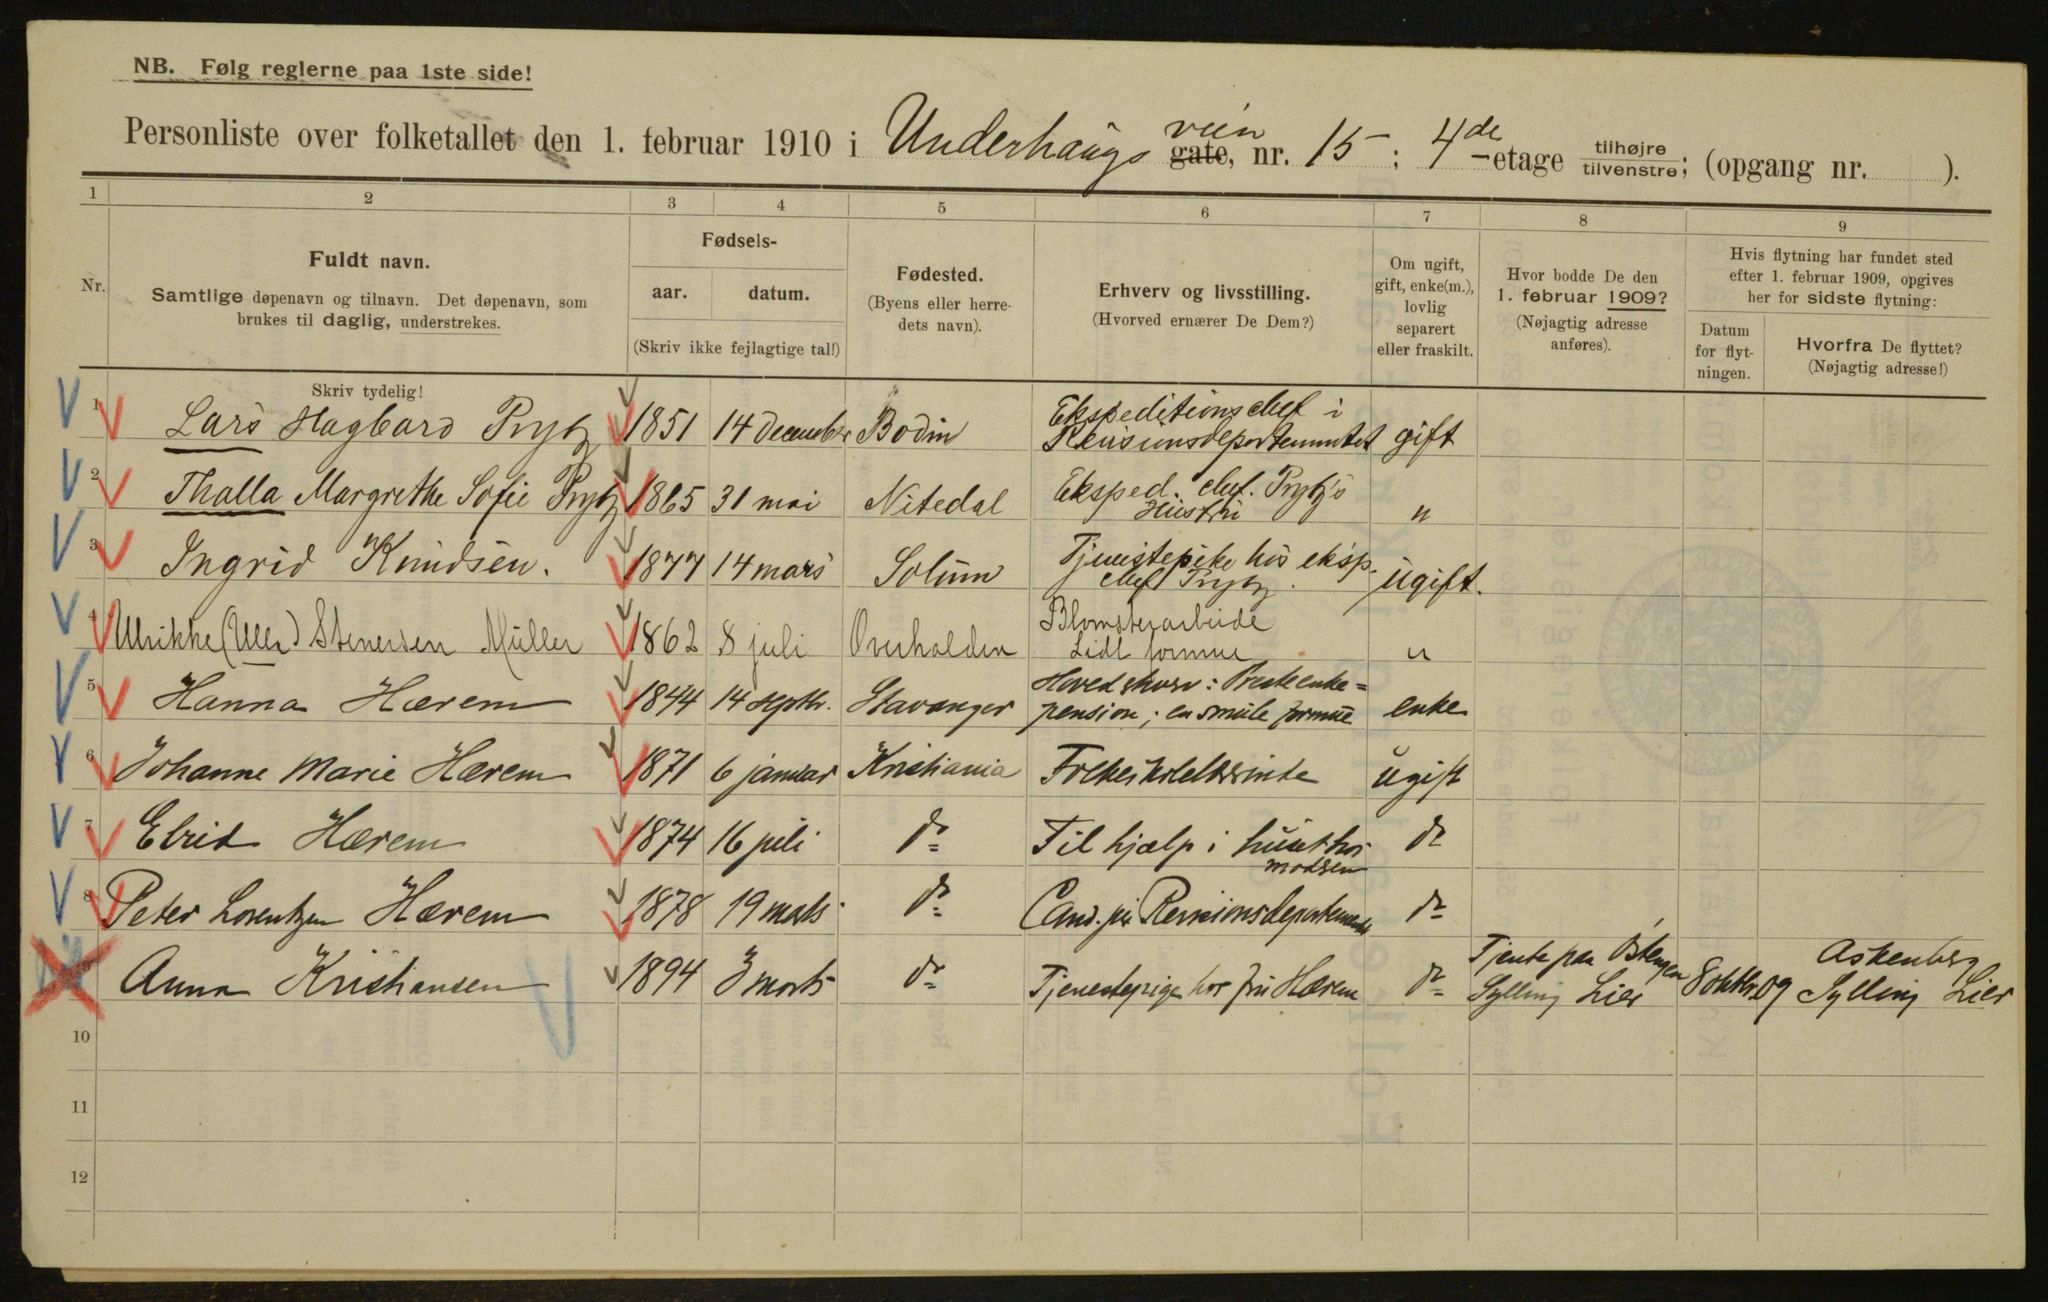 NB. Følg reglerne paa 1ste side!
Personliste over folketallet den 1. februar 1910 i Underhaugs gate, veien nr. 15; 4de-etage tilhøjre tilvenstre; (opgang nr. ).
1 2 3 4 5 6 7 8 9
Nr.
Fuldt navn.
Samtlige døpenavn og tilnavn. Det døpenavn, som
brukes til daglig, understrekes.
Skriv tydelig!
Fødsels-
aar. datum.
(Skriv ikke fejlagtige tal!)
Fødested.
(Byens eller herre-
dets navn).
Erhverv og livsstilling.
(Hvorved ernærer De Dem?)
Om ugift,
gift, enke(m.),
lovlig
separert
eller fraskilt.
Hvor bodde De den
1. februar 1909?
(Nøjagtig adresse
anføres).
Hvis flytning har fundet sted
efter 1. februar 1909, opgives
her for sidste flytning:
Datum
for flyt-
ningen.
Hvorfra De flyttet?
(Nøjagtig adresse!)
1 Lars Hagbard Prytz 1851 14 december Bodin Ekspeditionschef i
Revisionsdepartementet gift
2 Thalla Margrethe Sofie Prytz 1865 31 mai Nitedal Eksped. chef. Prytz's
Hustru "
3 Ingrid Knudsen. 1877 14 mars Solum Tjenestepike hos eksp.
chef Prytz. ugift.
4 Ulrikke (Ulla) Stenersen Müller 1862 8 juli Overhalden Blomsterarbeide
Lidt formue "
5 Hanna Hærem 1844 14 septbr. Stavanger Hovedskurv: Presteenke=
pension; en smule formue enke
6 Johanne Marie Hærem 1871 6 januar Kristiania Folkeskolelærerinde ugift
7 Elrid Hærem 1874 16 juli do Til hjælp i huset hos
modren do
8 Peter Lorentzen Hærem 1878 19 marts do Cand. jur. Revisionsdepartementet do
9 Anna Kristiansen 1894 3 marts do Tjenestepige hos fru Hærem do Tjente paa Østengen
Sylling Lier 8 oktbr. 09 Askenberg
Sylling Lier
10
11
12